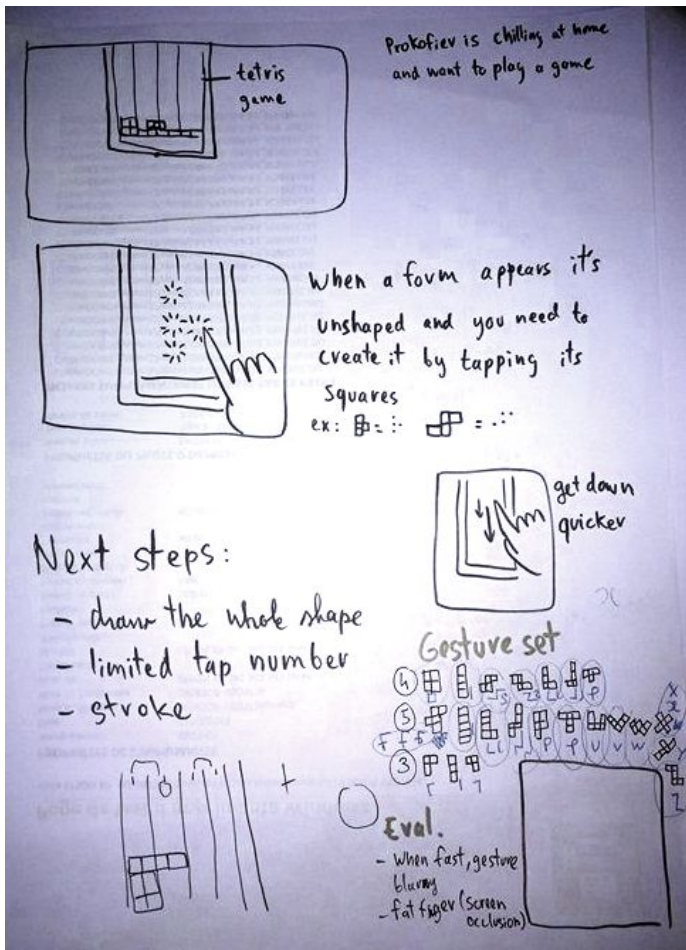 Prokofiev is chilling at home
and want to play a game
tetris
game
When a form appears it's
unshaped and you need to
create it by tapping its
squares
ex:
get down
quicker
Next steps:
- draw the whole shape
- limited tap number
- stroke
Gesture set
4
5
3
Eval.
- When fast, gesture
blurry
- fat figer (screen
occlusion)